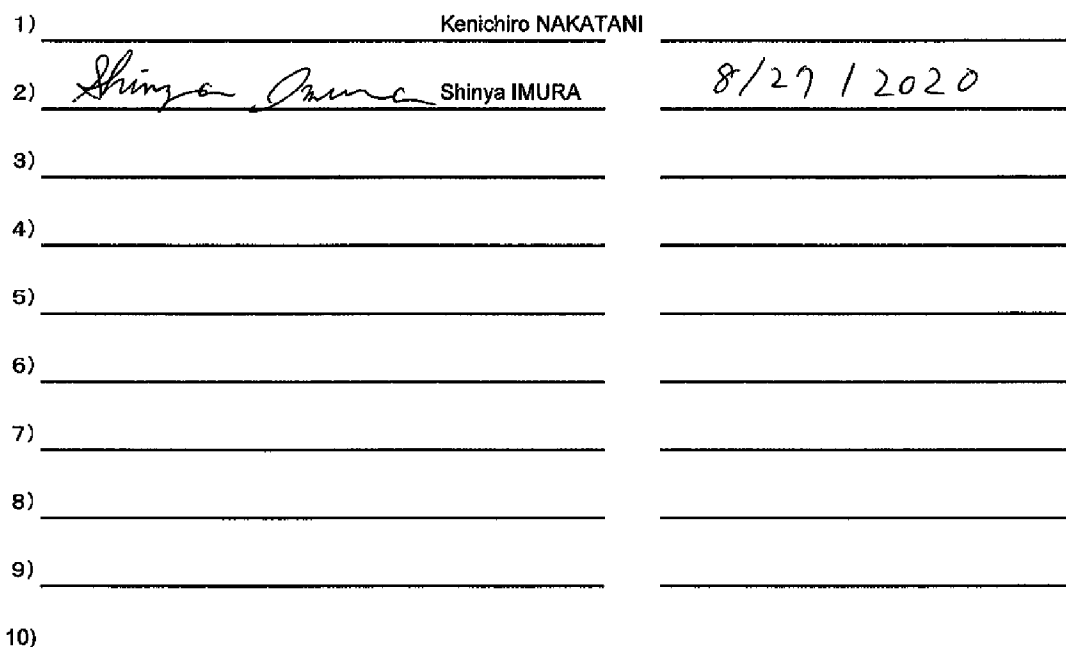 1) Kenichiro NAKATANI
2) Shinya Imura Shinya IMURA 8/27/2020
3)
4)
5)
6)
7)
8)
9)
10)